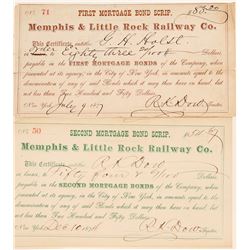 No. 71
FIRST MORTGAGE BOND SCRIP.
Memphis & Little Rock Railway Co.
This Certificate
G. H. Holst
Eighty three 20/100 Dollars
payable in the FIRST MORTGAGE BONDS of the Company, when
presented at its agency, in the City of New York, in amounts equal to the
denomination of any of said Bonds which it may then have, but not less
than Two Hundred and Fifty Dollars.
New York July 9 1877
R K Dow
No. 50
SECOND MORTGAGE BOND SCRIP.
Memphis & Little Rock Railway Co.
This Certificate
R K Dow
Fifty four & Dollars
payable in SECOND MORTGAGE BONDS of the Company, when
presented at its agency, in the City of New York, in amounts equal to the
denomination of any of said Bonds which it may then have, but not less
than Two Hundred and Fifty Dollars.
New York Dec 10
R K Dow